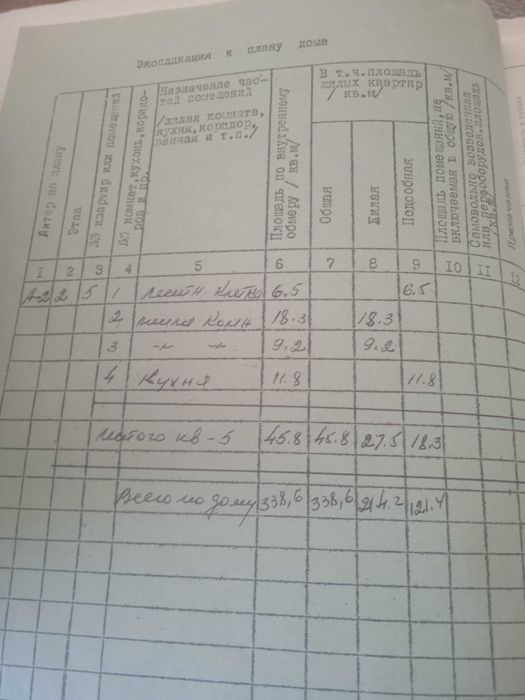 Экспликация к плану дома
Литер по плану
Этаж
№№ квартир или помещений
№№ комнат, кухонь, коридо-
ров и пр.
Назначение час-
тей помещений
/жилая комната,
кухня, коридор,
ванчая и т.п./
Площадь по внутреннему
обмеру / кв.м/
В т.ч.площадь
жилых квартир
/ кв.м/
Общая
Жилая
Подсобная
Площадь помещений, не
включаемая в общую /кв.м/
Самовольно возведенная
или переоборудов.площадь
/кв.м/
Примечание
I 2 3 4 5 6 7 8 9 IO II I2
А-2 2 5 1 лестн. клетка 6.5 6.5
2 жилая комн 18.3 18.3
3 -"- -"- 9.2 9.2
4 кухня 11.8 11.8
Итого кв-5 45.8 45.8 27.5 18.3
Всего по дому 338,6 338,6 214.2 121.4